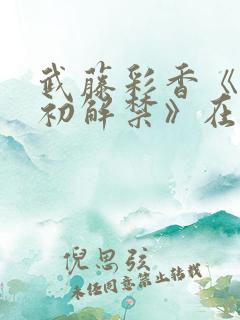 武藤彩香《
初解禁》在
倪思弦
未经同意禁止转载